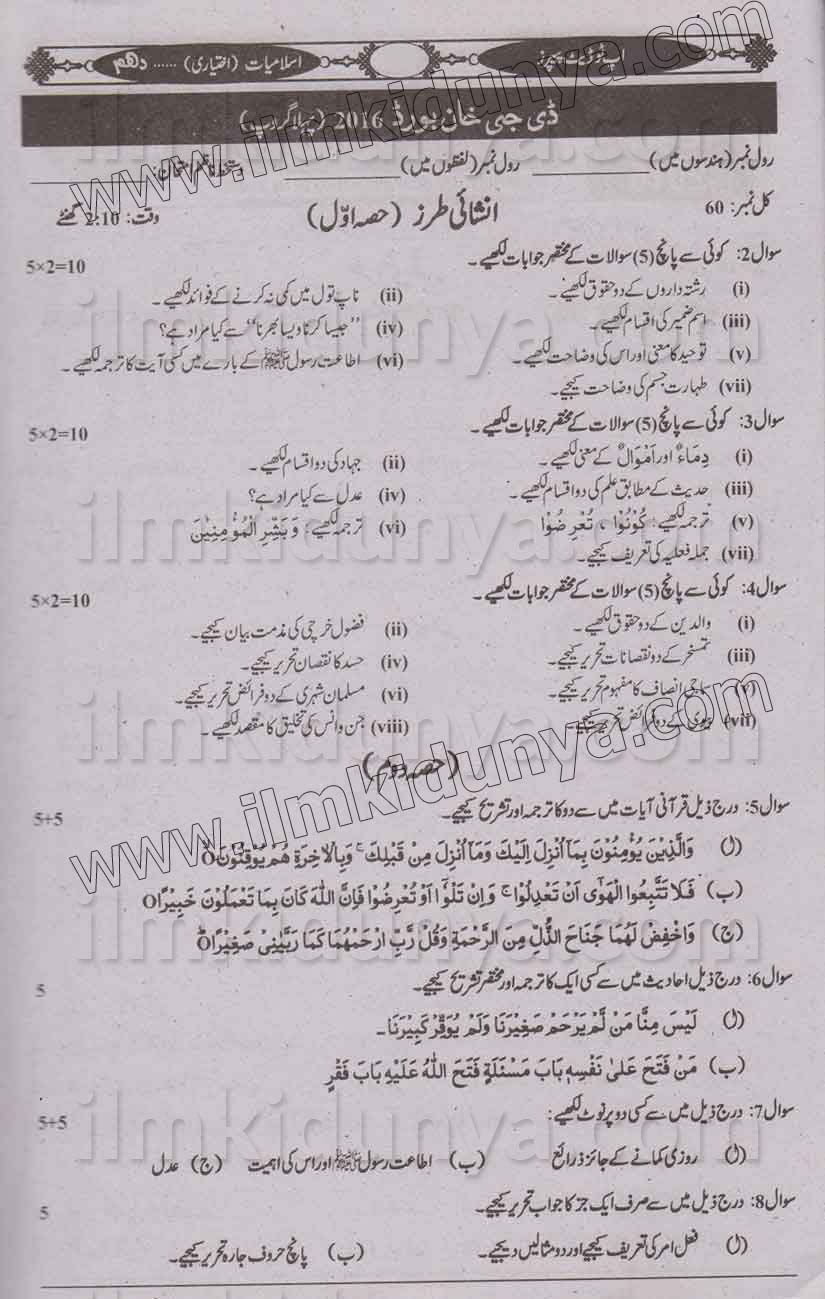 اپ ٹو ڈیٹ پیپرز
اسلامیات (اختیاری) ...... دہم
ڈی جی خان بورڈ 2016 (پہلا گروپ)
رول نمبر (ہندسوں میں) ____________ رول نمبر (لفظوں میں) ____________ دستخط ناظم امتحان: ____________
کل نمبر: 60 انشائی طرز (حصہ اوّل) وقت: 2:10 گھنٹے
سوال 2: کوئی سے پانچ (5) سوالات کے مختصر جوابات لکھیے۔ 5×2=10
(i) رشتہ داروں کے دو حقوق لکھیے۔ (ii) ناپ تول میں کمی نہ کرنے کے فوائد لکھیے۔
(iii) اسم ضمیر کی اقسام لکھیے۔ (iv) ’’جیسا کرنا ویسا بھرنا‘‘ سے کیا مراد ہے؟
(v) توحید کا معنی اور اس کی وضاحت لکھیے۔ (vi) اطاعت رسول ﷺ کے بارے میں کسی آیت کا ترجمہ لکھیے۔
(vii) طہارت جسم کی وضاحت کیجیے۔
سوال 3: کوئی سے پانچ (5) سوالات کے مختصر جوابات لکھیے۔ 5×2=10
(i) دِمَاءٌ اور اَمْوَالٌ کے معنی لکھیے۔ (ii) جہاد کی دو اقسام لکھیے۔
(iii) حدیث کے مطابق علم کی دو اقسام لکھیے۔ (iv) عدل سے کیا مراد ہے؟
(v) ترجمہ لکھیے: كُوْنُوْا ، تُعْرِضُوْا (vi) ترجمہ لکھیے: وَبَشِّرِ الْمُؤْمِنِيْنَ
(vii) جملہ فعلیہ کی تعریف کیجیے۔
سوال 4: کوئی سے پانچ (5) سوالات کے مختصر جوابات لکھیے۔ 5×2=10
(i) والدین کے دو حقوق لکھیے۔ (ii) فضول خرچی کی مذمت بیان کیجیے۔
(iii) تمسخر کے دو نقصانات تحریر کیجیے۔ (iv) حسد کا نقصان تحریر کیجیے۔
(v) سماجی انصاف کا مفہوم تحریر کیجیے۔ (vi) مسلمان شہری کے دو فرائض تحریر کیجیے۔
(vii) بیوی کے دو فرائض تحریر کیجیے۔ (viii) جن و انس کی تخلیق کا مقصد لکھیے۔
(حصہ دوم)
سوال 5: درج ذیل قرآنی آیات میں سے دو کا ترجمہ اور تشریح کیجیے۔ 5+5
(ا) وَالَّذِيْنَ يُؤْمِنُوْنَ بِمَآ اُنْزِلَ اِلَيْكَ وَمَآ اُنْزِلَ مِنْ قَبْلِكَ ۚ وَبِالْاٰخِرَةِ هُمْ يُوْقِنُوْنَO
(ب) فَلَا تَتَّبِعُوا الْهَوٰٓى اَنْ تَعْدِلُوْا ۚ وَاِنْ تَلْوٗٓا اَوْ تُعْرِضُوْا فَاِنَّ اللّٰهَ كَانَ بِمَا تَعْمَلُوْنَ خَبِيْرًاO
(ج) وَاخْفِضْ لَهُمَا جَنَاحَ الذُّلِّ مِنَ الرَّحْمَةِ وَقُلْ رَّبِّ ارْحَمْهُمَا كَمَا رَبَّيٰنِيْ صَغِيْرًاO
سوال 6: درج ذیل احادیث میں سے کسی ایک کا ترجمہ اور مختصر تشریح کیجیے۔ 5
(ا) لَيْسَ مِنَّا مَنْ لَّمْ يَرْحَمْ صَغِيْرَنَا وَلَمْ يُوَقِّرْ كَبِيْرَنَا۔
(ب) مَنْ فَتَحَ عَلىٰ نَفْسِهٖ بَابَ مَسْئَلَةٍ فَتَحَ اللّٰهُ عَلَيْهِ بَابَ فَقْرٍ
سوال 7: درج ذیل میں سے کسی دو پر نوٹ لکھیے: 5+5
(ا) روزی کمانے کے جائز ذرائع (ب) اطاعت رسول ﷺ اور اس کی اہمیت (ج) عدل
سوال 8: درج ذیل میں سے صرف ایک جز کا جواب تحریر کیجیے۔ 5
(ا) فعل امر کی تعریف کیجیے اور دو مثالیں دیجیے۔ (ب) پانچ حروف جارہ تحریر کیجیے۔
www.ilmkidunya.com
www.ilmkidunya.com
ilmkidunya.com
ilmkidunya.com
ilmkidunya.com
ilmkidunya.com
ilmkidunya.com
ilmkidunya.com